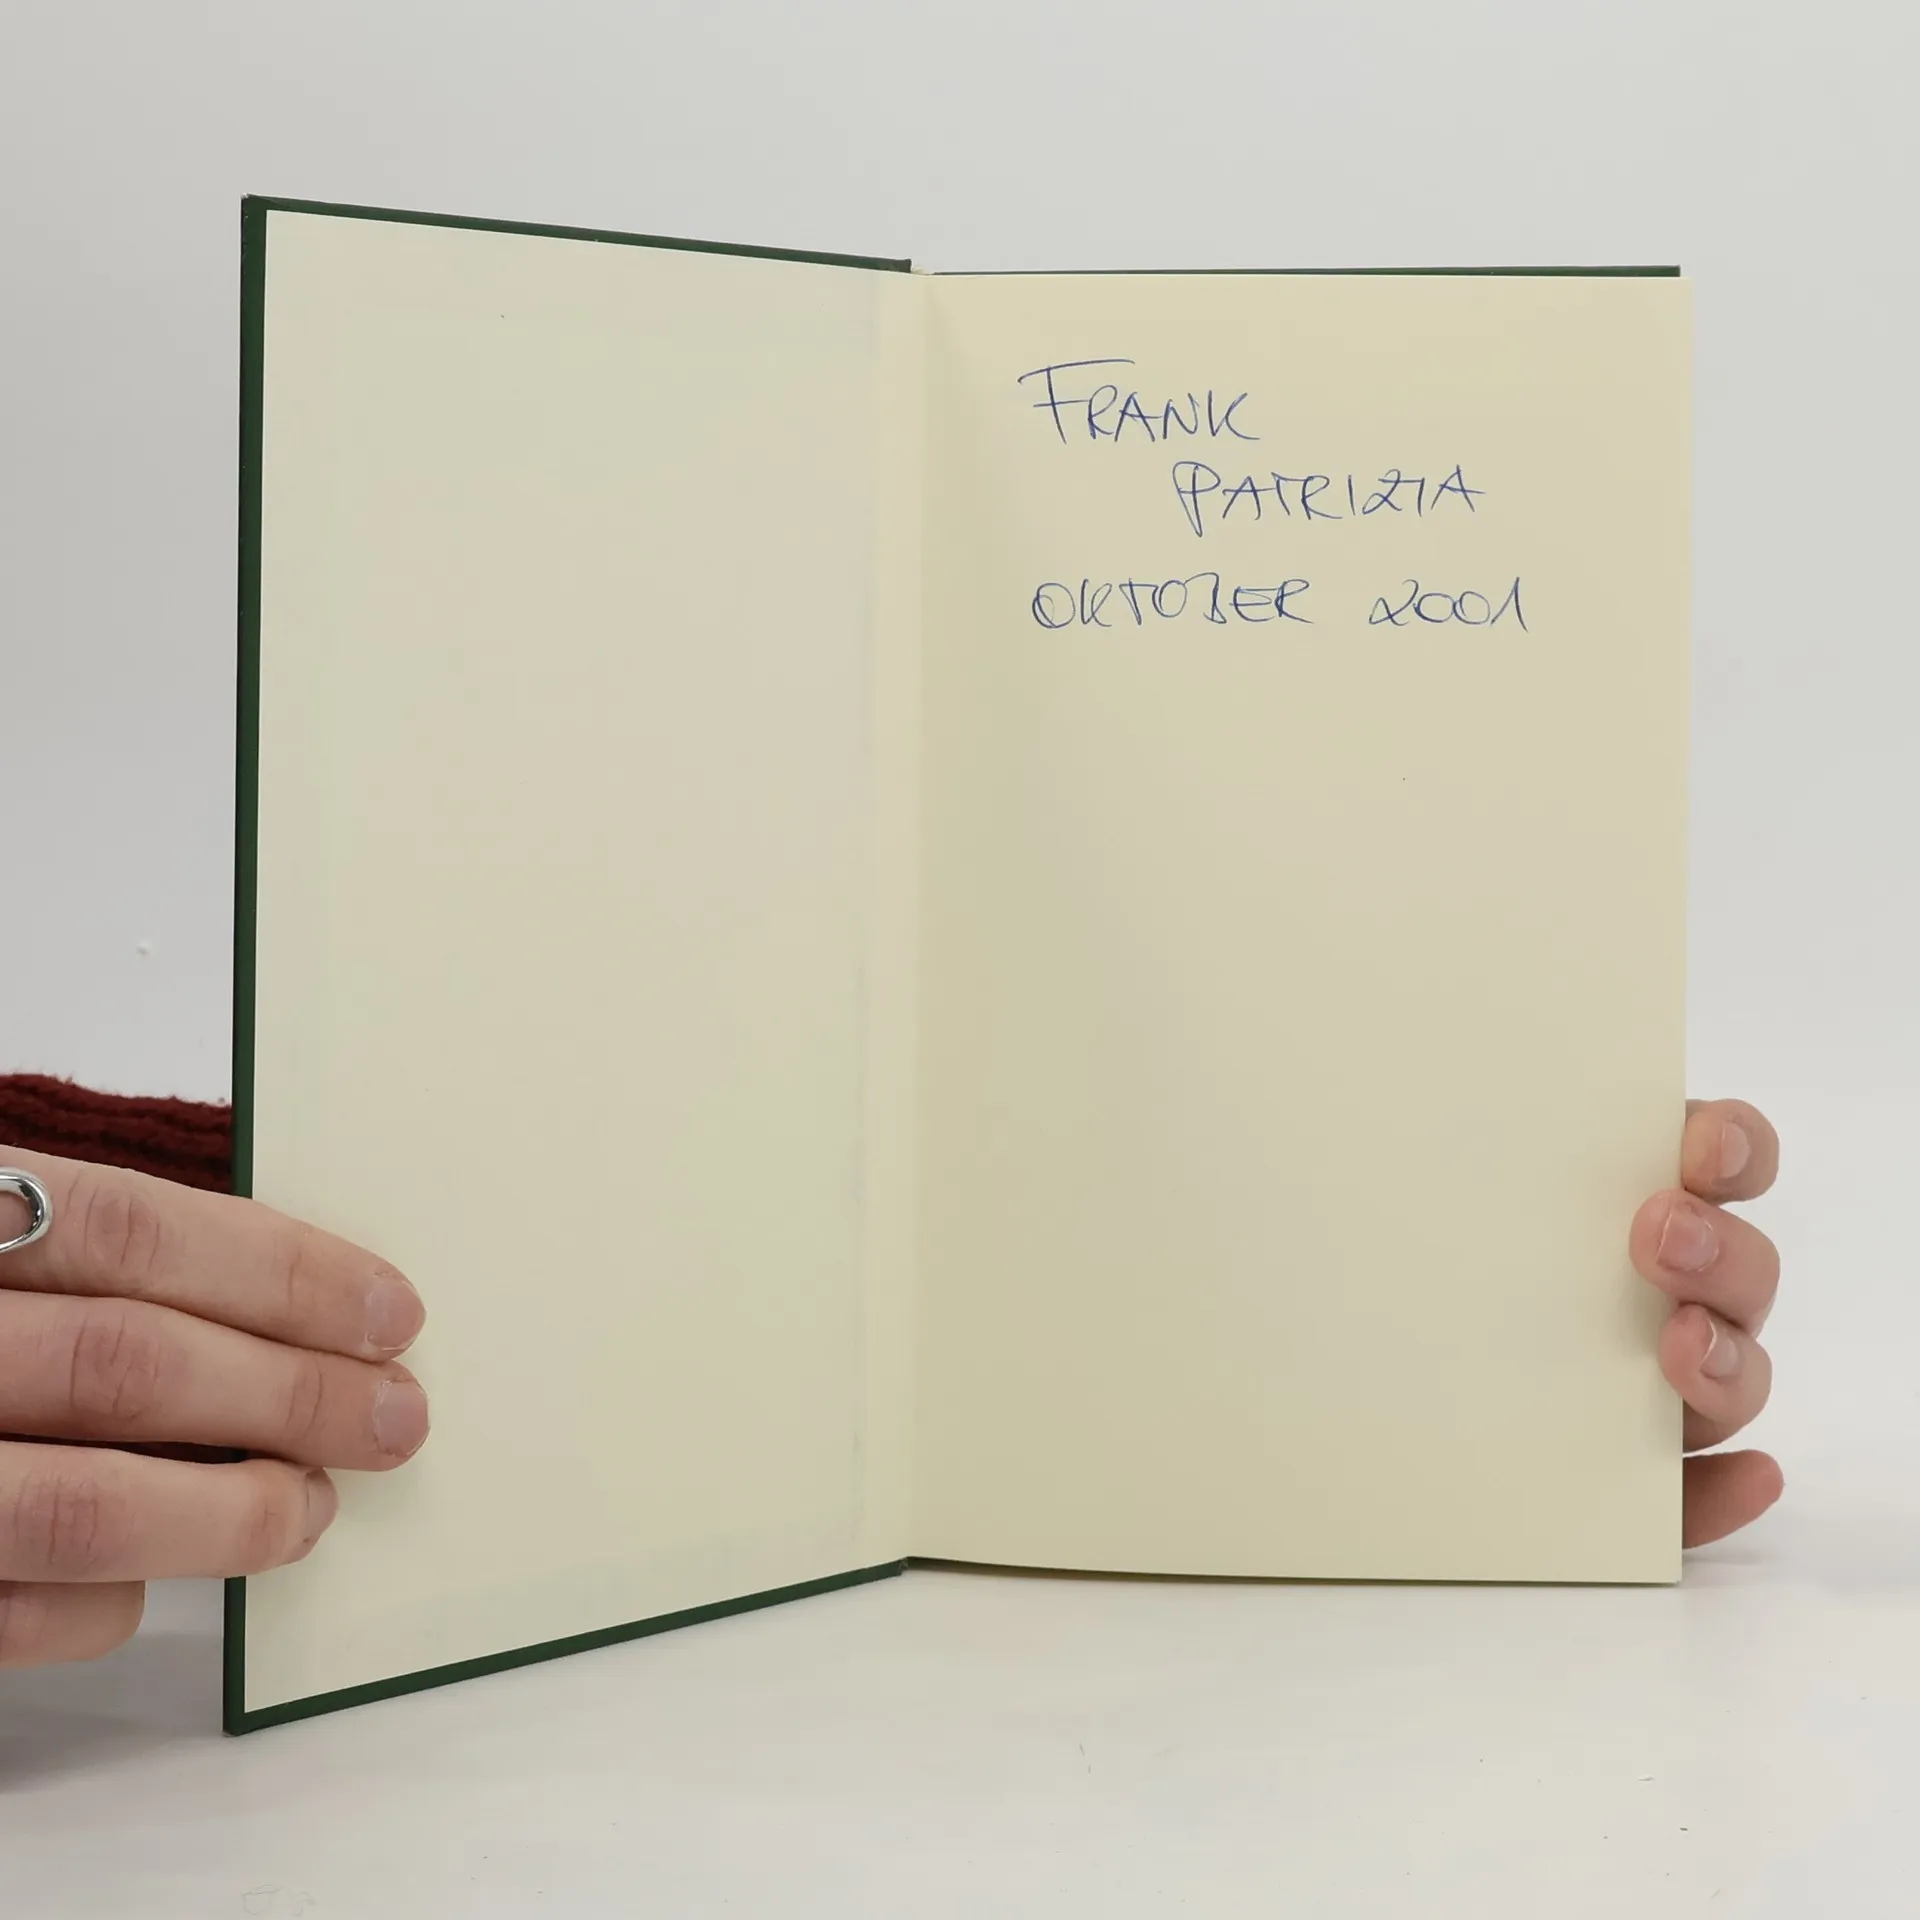 FRANK
PATRIZIA
OKTOBER 2001